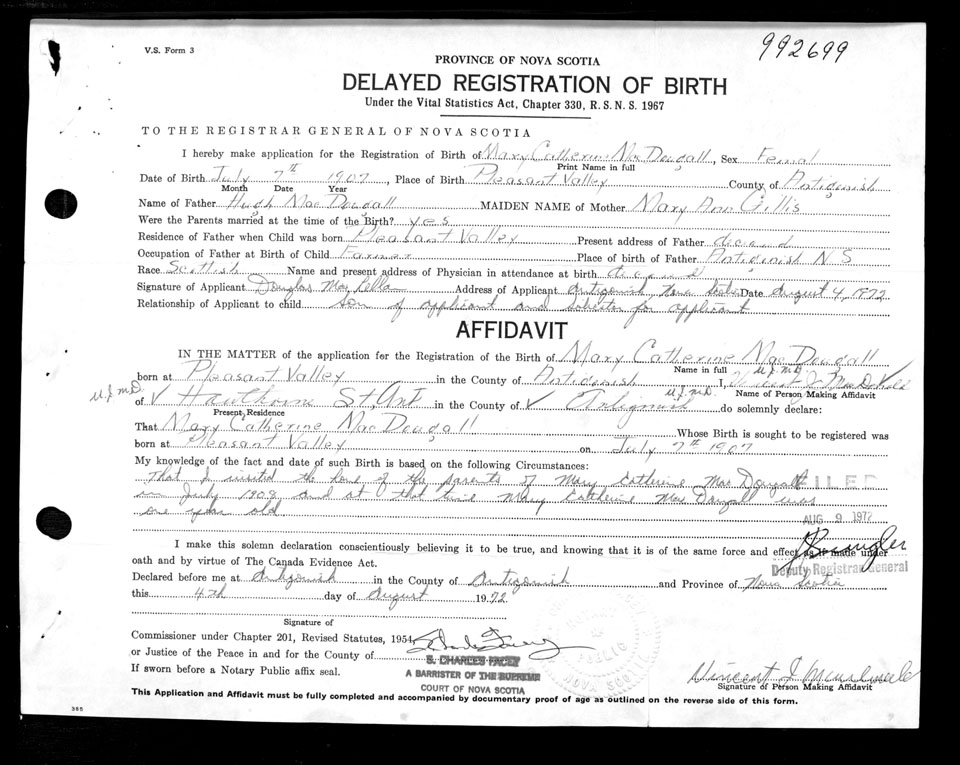 992699
V.S. Form 3
PROVINCE OF NOVA SCOTIA
DELAYED REGISTRATION OF BIRTH
Under the Vital Statistics Act, Chapter 330, R.S.N.S. 1967
TO THE REGISTRAR GENERAL OF NOVA SCOTIA
I hereby make application for the Registration of Birth of Mary Catherine MacDougall, Sex Femal
Print Name in full
Date of Birth July 7th 1907, Place of Birth Pleasant Valley County of Antigonish
Month Date Year
Name of Father Hugh MacDougall MAIDEN NAME of Mother Mary Ann Gillis
Were the Parents married at the time of the Birth? yes
Residence of Father when Child was born Pleasant Valley Present address of Father
Occupation of Father at Birth of Child Farmer Place of birth of Father Antigonish N S
Race Scottish Name and present address of Physician in attendance at birth
Signature of Applicant Douglas Address of Applicant Antigonish, Nova Scotia Date August 4, 1972
Relationship of Applicant to child son of applicant and solicitor for applicant
AFFIDAVIT
IN THE MATTER of the application for the Registration of the Birth of Mary Catherine MacDougall
Name in full V.J.M.D.
born at Pleasant Valley in the County of Antigonish I, Vincent J.
Name of Person Making Affidavit
V.J.M.D. of Hawthorne St, Ant in the County of V.J.M.D. Antigonish do solemnly declare:
Present Residence
That Mary Catherine MacDougall Whose Birth is sought to be registered was
born at Pleasant Valley on July 7th 1907
My knowledge of the fact and date of such Birth is based on the following Circumstances:
That I visited the home of the parents of Mary Catherine MacDougall FILED
in July 1908 and at that time Mary Catherine MacDougall was
one year old. AUG 9 1972
I make this solemn declaration conscientiously believing it to be true, and knowing that it is of the same force and effect as if made under
oath and by virtue of The Canada Evidence Act. Deputy Registrar General
Declared before me at Antigonish in the County of Antigonish and Province of Nova Scotia
this 4th day of August 1972
Signature of
Commissioner under Chapter 201, Revised Statutes, 1954
or Justice of the Peace in and for the County of
S. CHARLES FACEY
If sworn before a Notary Public affix seal.
A BARRISTER OF THE SUPREME
COURT OF NOVA SCOTIA
Vincent J.
Signature of Person Making Affidavit
This Application and Affidavit must be fully completed and accompanied by documentary proof of age as outlined on the reverse side of this form.
385